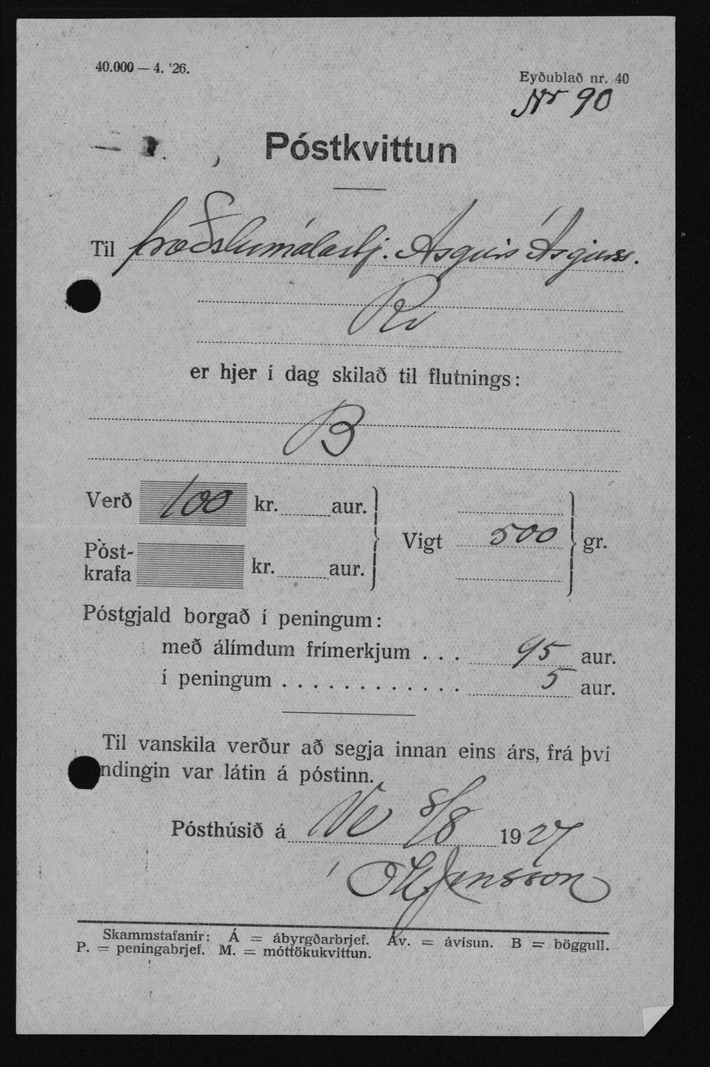 40.000 — 4. '26.
Eyðublað nr. 40
Nr 90
Póstkvittun
Til fræðslumálastj. Asgeirs Ásgeirss.
Rv
er hjer í dag skilað til flutnings:
B
Verð 100 kr. aur.
Vigt 500 gr.
Póst-
krafa kr. aur.
Póstgjald borgað í peningum:
með álímdum frímerkjum . . . 95 aur.
í peningum . . . . . . . . . . . . . 5 aur.
Til vanskila verður að segja innan eins árs, frá því
ndingin var látin á póstinn.
Pósthúsið á Ve 8/8 1927
Jensson
Skammstafanir: Á = ábyrgðarbrjef. Áv. = ávísun. B = böggull.
P. = peningabrjef. M. = móttökukvittun.